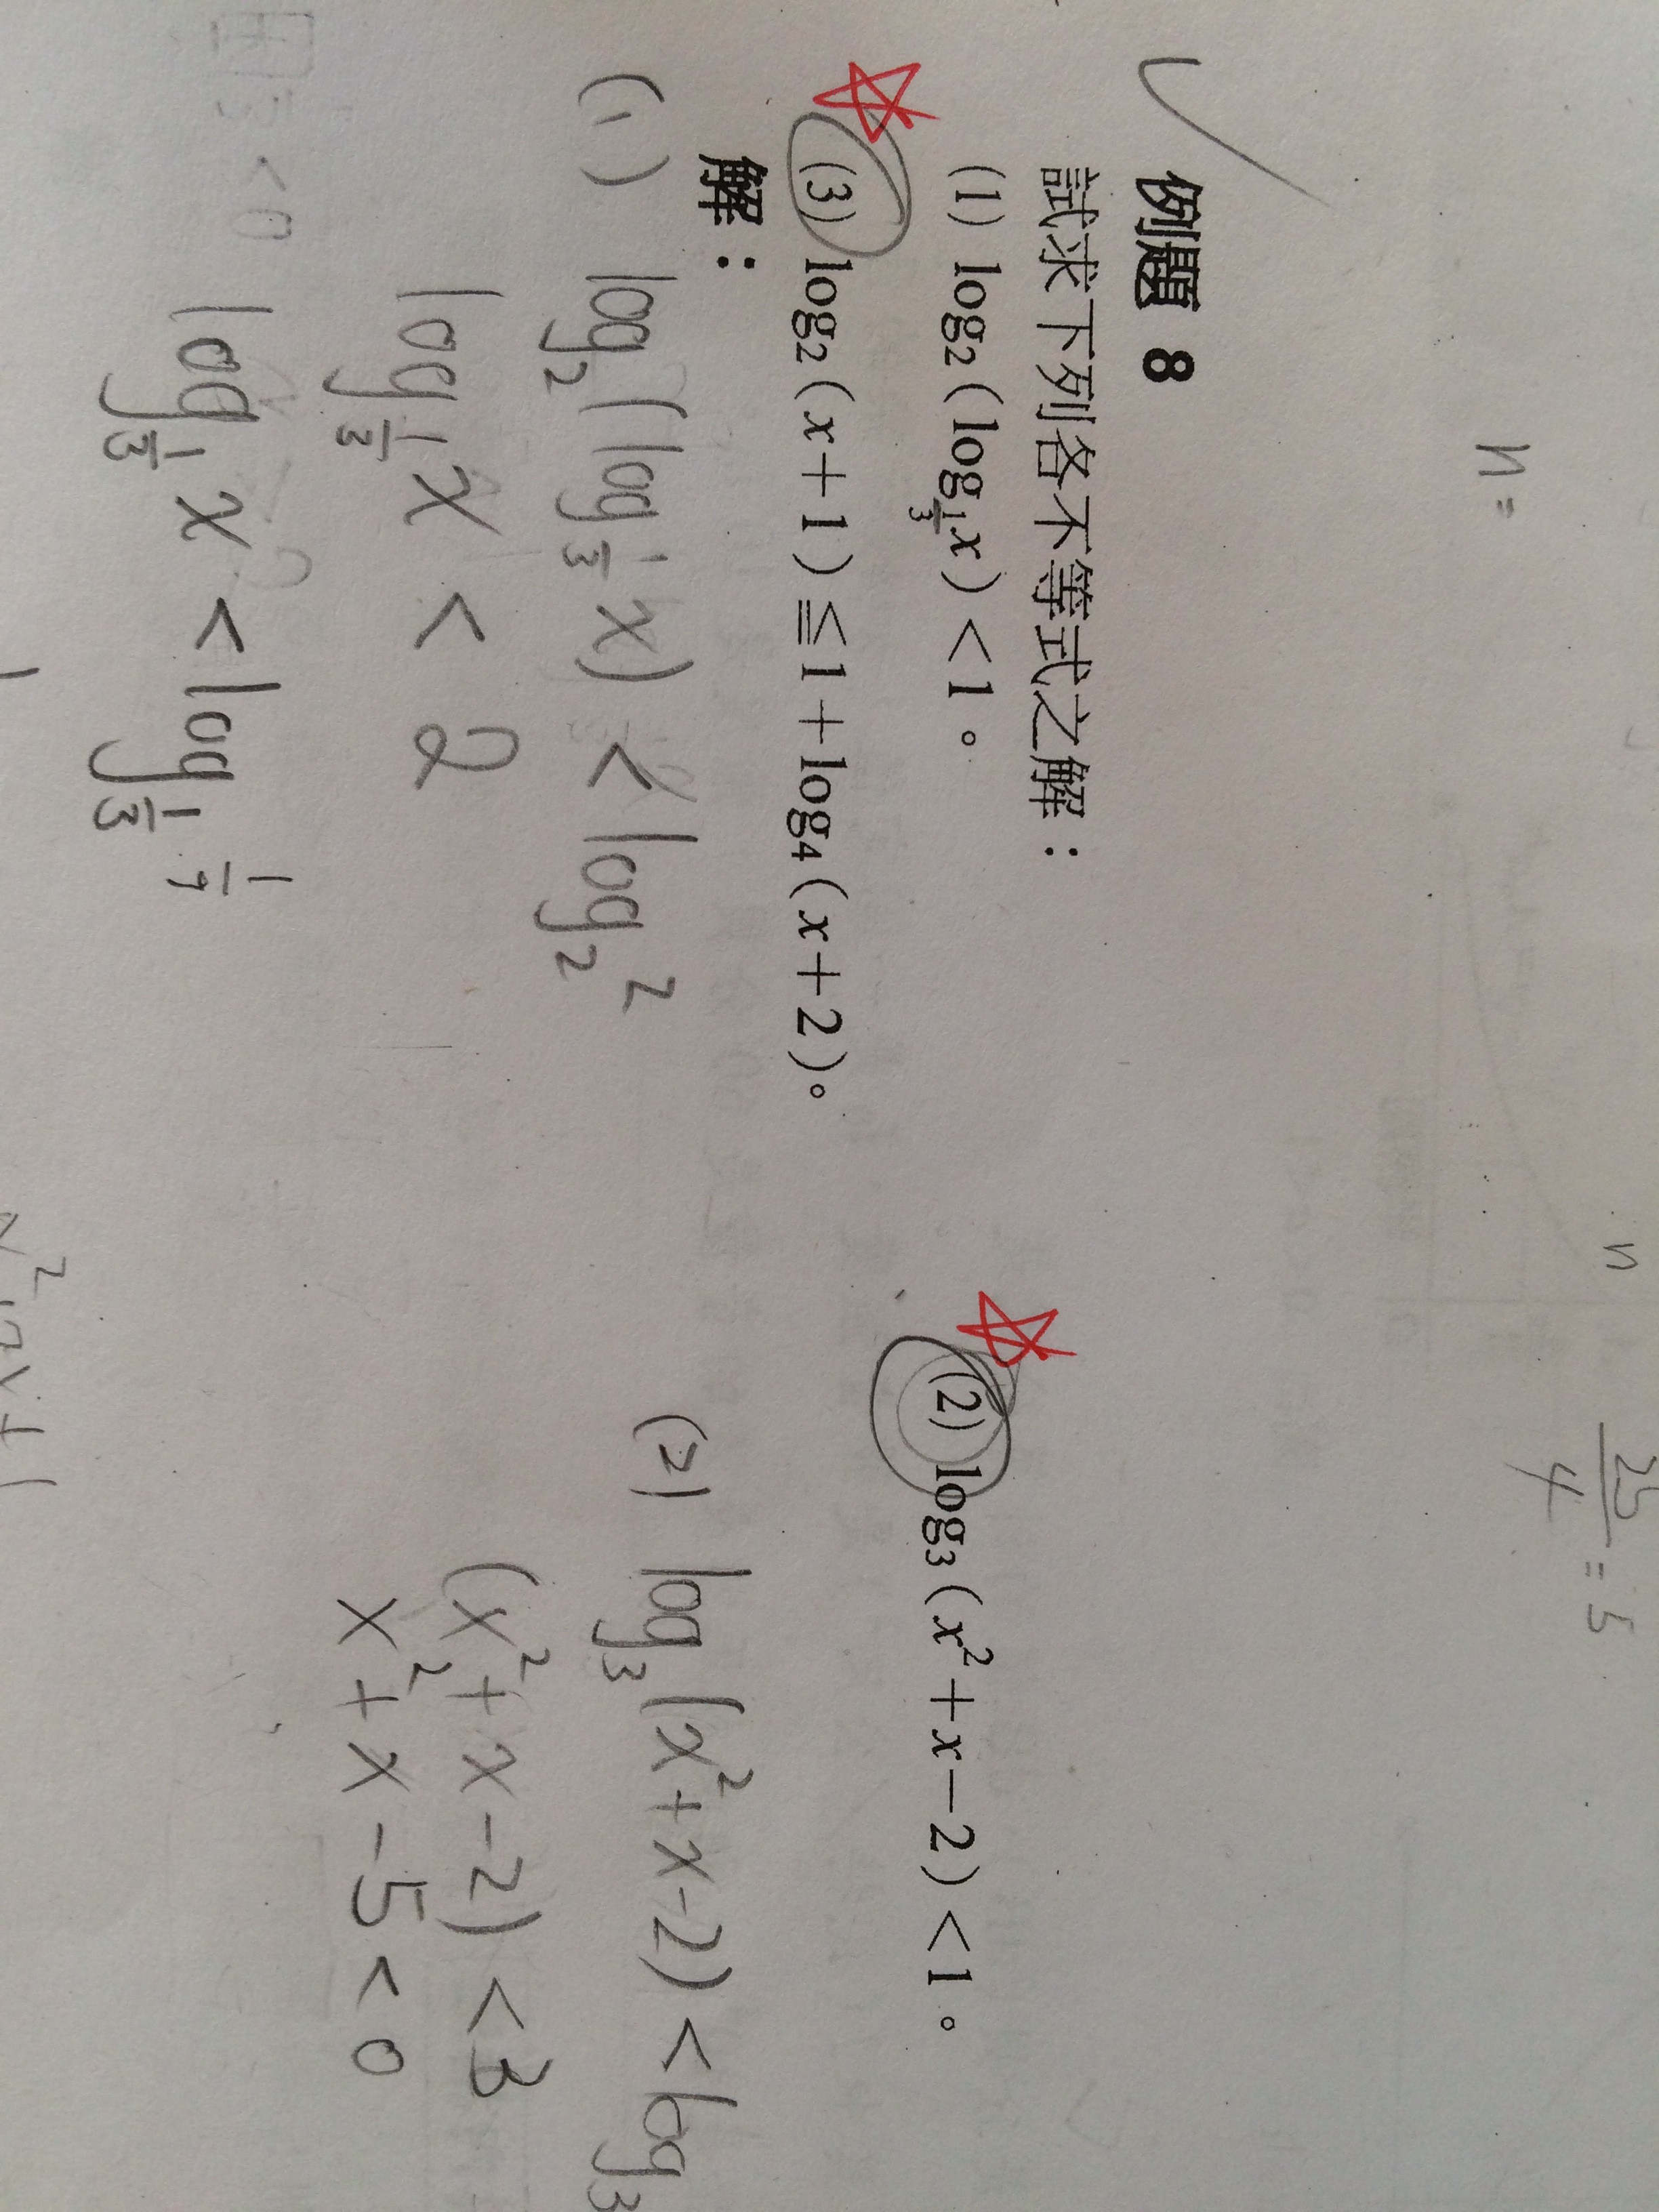 n =
n
25/4 = 5
例題 8
試求下列各不等式之解：
(1) log₂(log_{1/3}x)<1。
(2) log₃(x²+x−2)<1。
(3) log₂(x+1)≦1+log₄(x+2)。
解：
(1) log₂(log_{1/3} x) < log₂²
log_{1/3} x < 2
log_{1/3} x < log_{1/3} 1/9
(2) log₃(x²+x-2) < log₃
(x²+x-2) < 3
x²+x-5 < 0
< 0